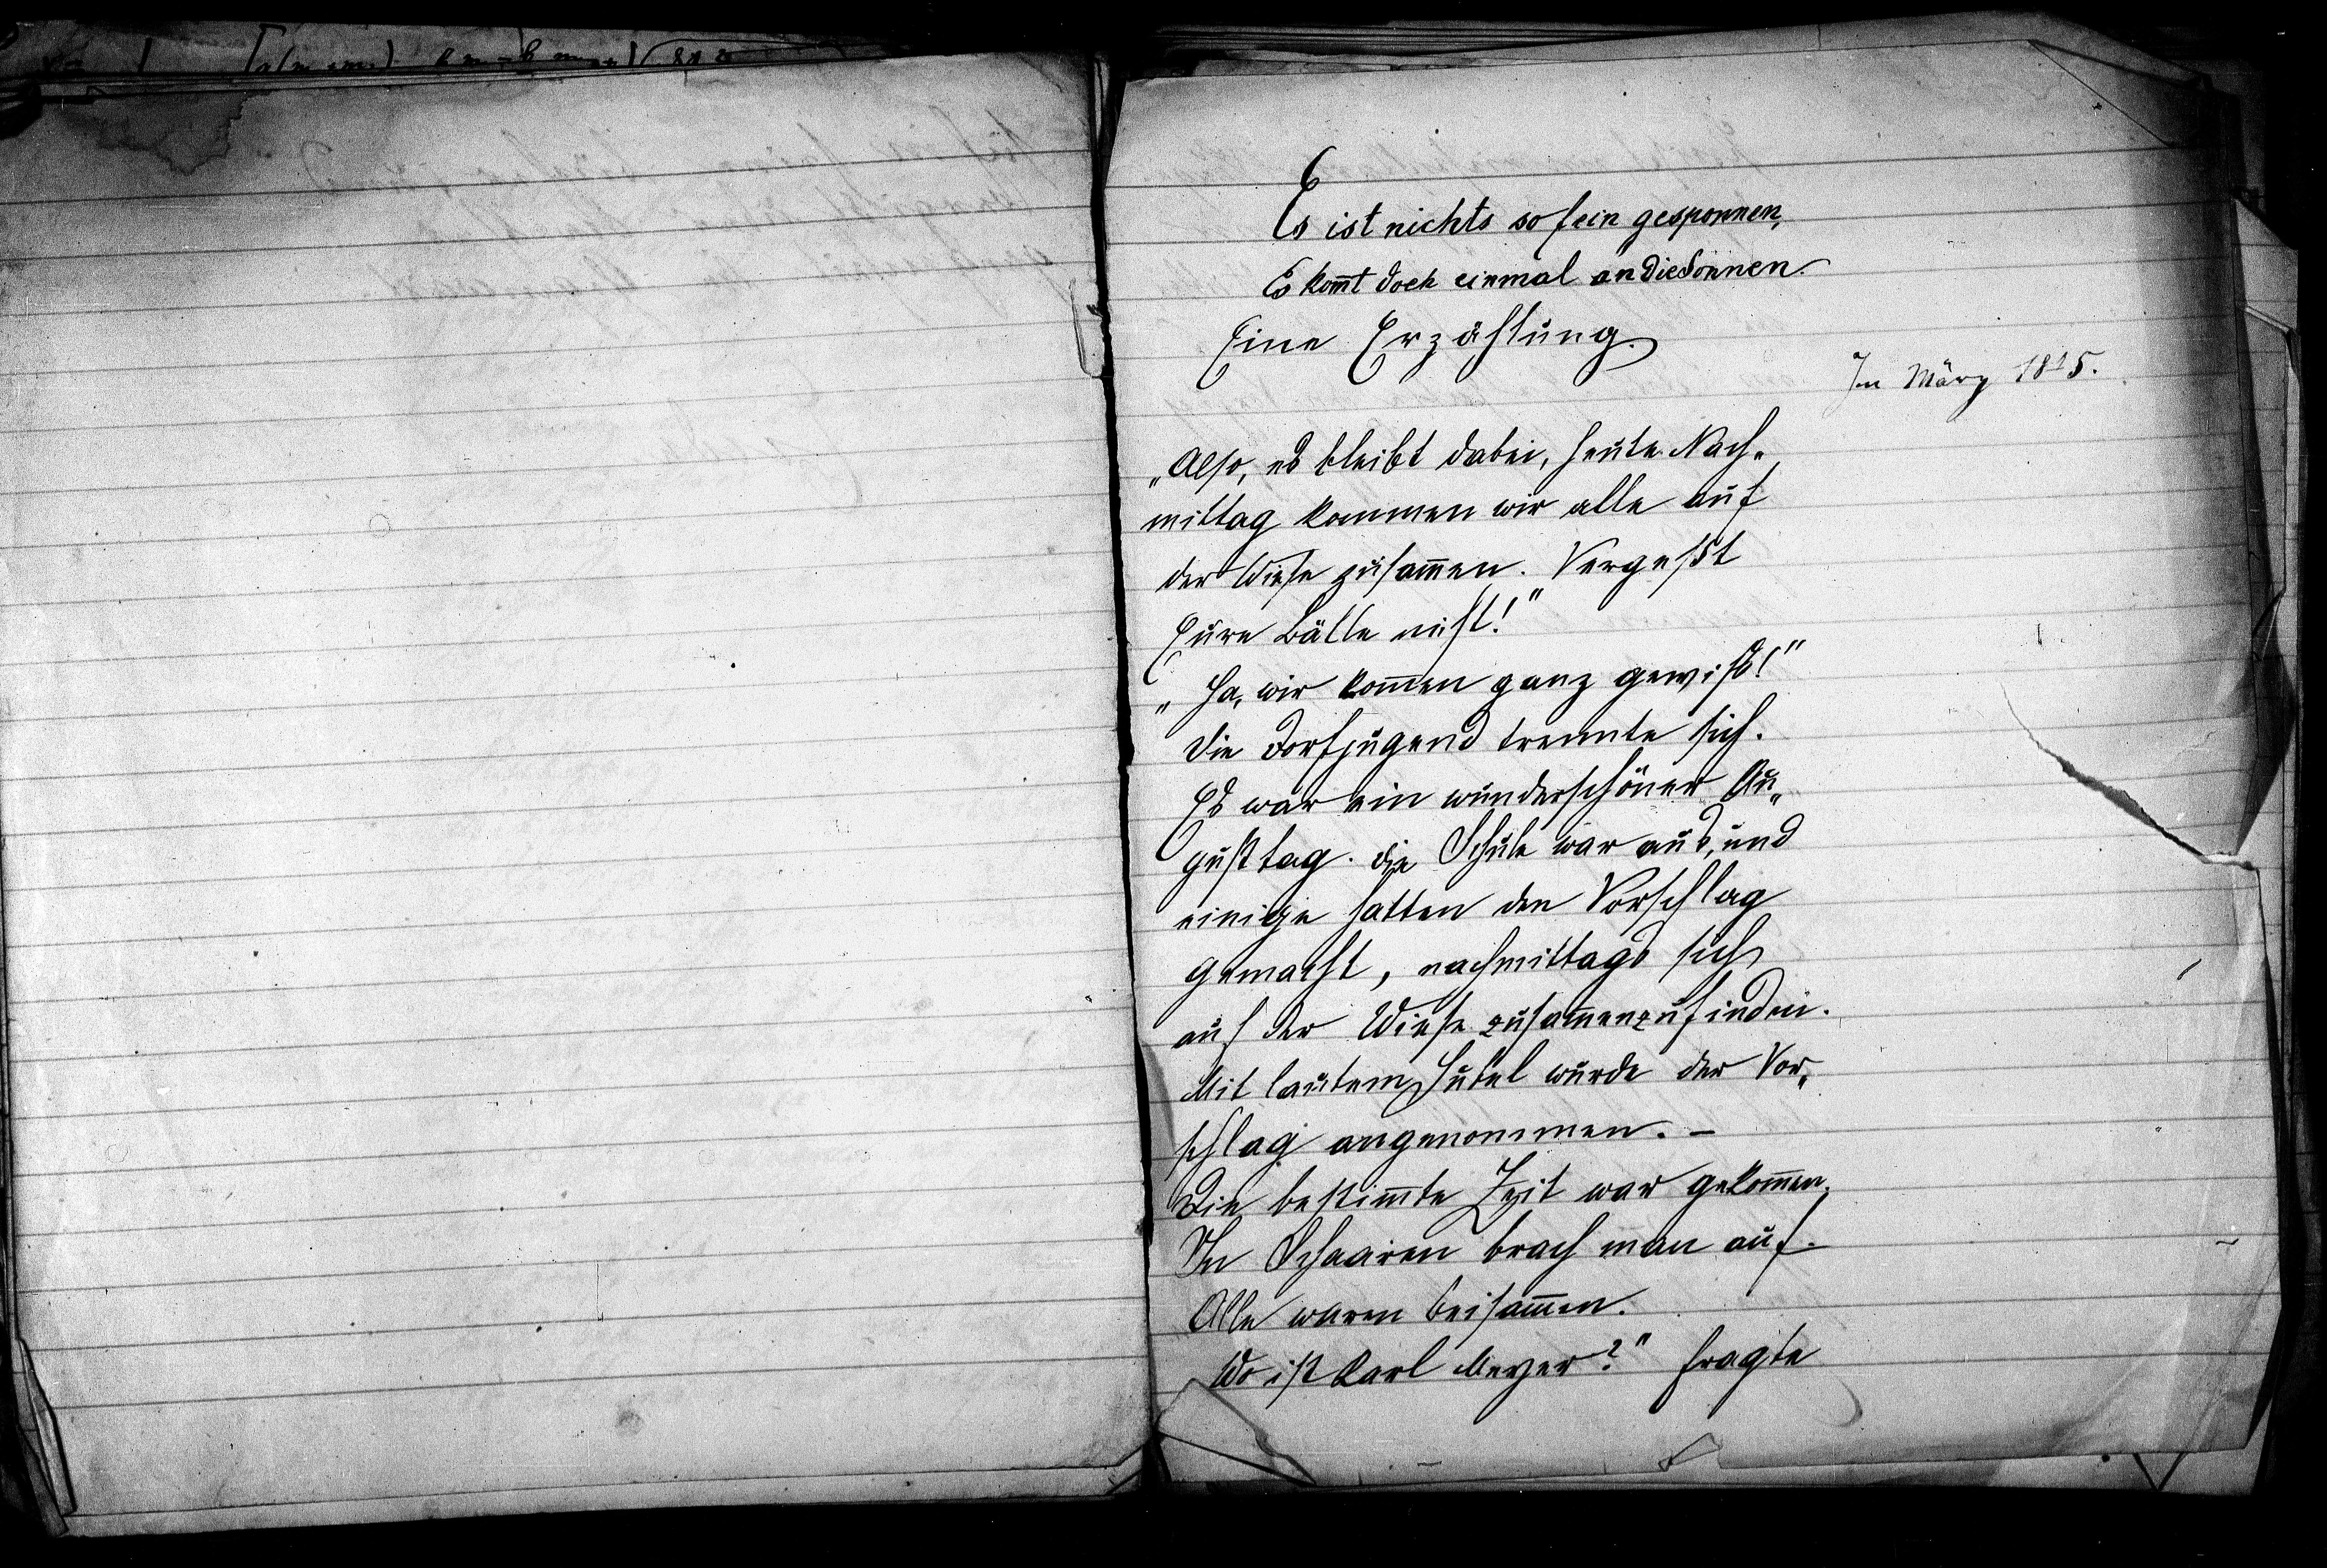 Es ist nichts so fein gesponnen,
Es kom̄t doch einmal an die Sonnen.
Eine Erzählung.
Im März 1815.
„Also, es bleibt dabei, heute Nach„
mittag kommen wir alle auf
der Wiese zusam̄en. Vergeßt
Eure Bälle nicht!"
„Ja, wir kom̄en ganz gewiß!"
Die Dorfjugend trennte sich.
Es war ein wunderschöner Au„
gusttag. Die Schule war aus, und
einige hatten den Vorschlag
gemacht, nachmittags sich
auf der Wiese zusam̄enzufinden.
Mit lautem Jubel wurde der Vor„
schlag angenommen. –
Die bestim̄te Zeit war gekom̄en.
In Schaaren brach man auf.
Alle waren beisam̄en.
Wo ist Karl Meyer?" fragte